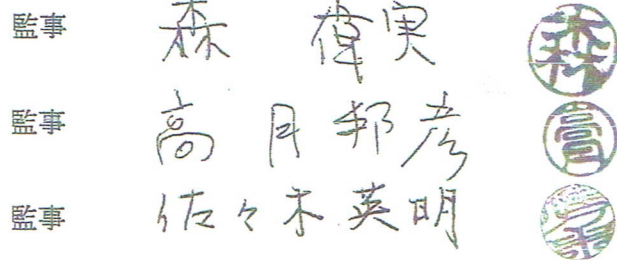 監事 森 偉実 森
監事 高月邦彦
監事 佐々木英明